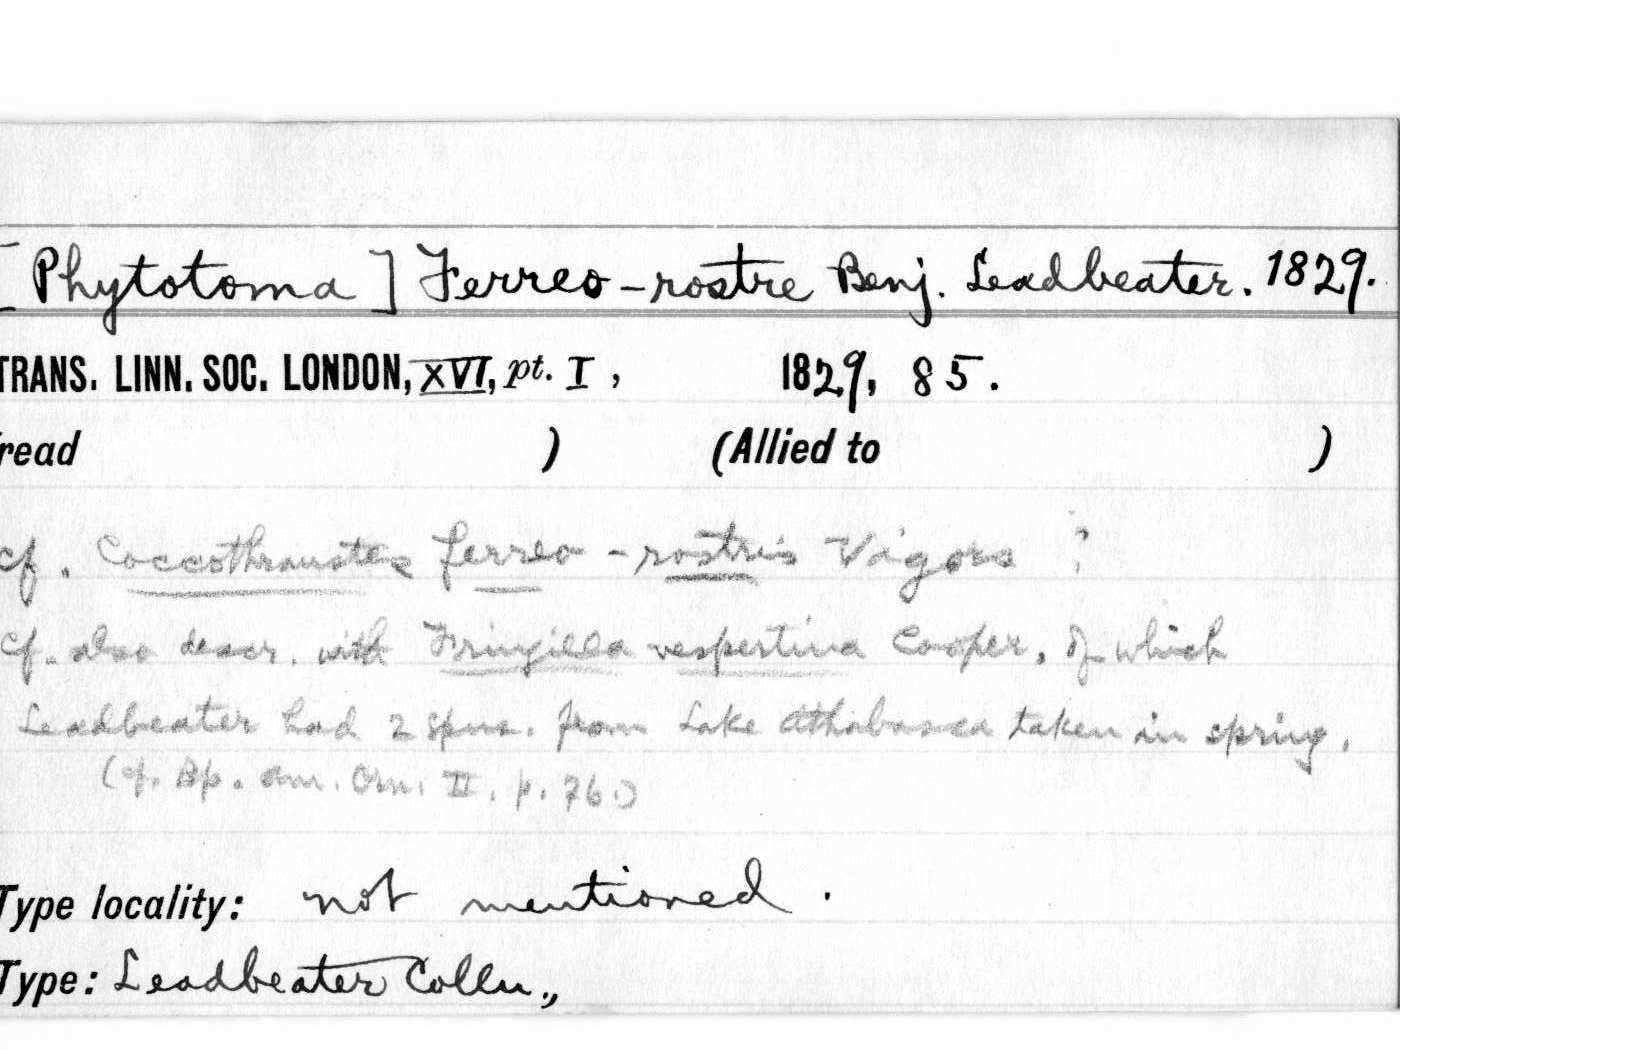 [Phytotoma] Ferreo-rostre Benj. Leadbeater. 1829.
TRANS. LINN. SOC. LONDON, XVI, pt. I, 1829, 85.
read ) (Allied to )
cf. Coccothraustes ferreo-rostris Vigors ?
Cf. also descr. with Fringilla vespertina Cooper, of which
Leadbeater had 2 spns. from Lake Athabasca taken in spring.
(cf. Bp. Am. Orn. II. p. 76.)
Type locality: not mentioned.
Type: Leadbeater Colln.,